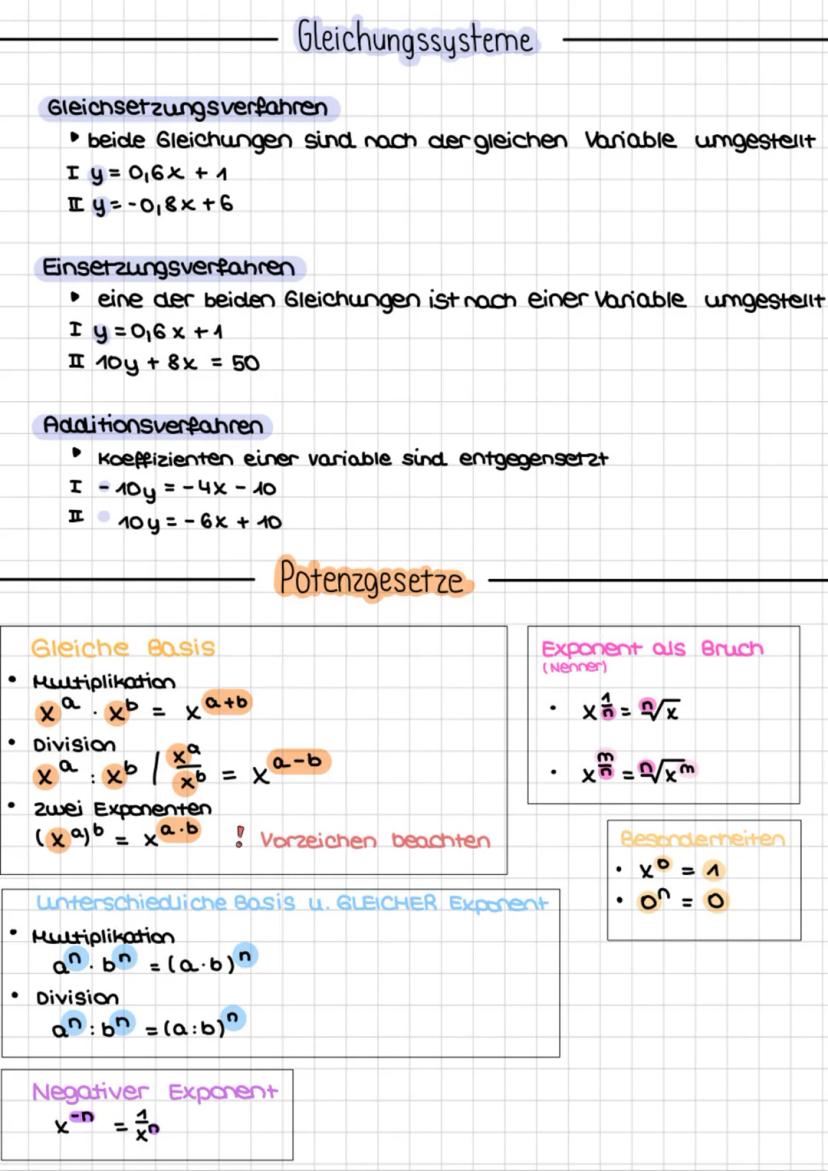 Gleichungssysteme
Gleichsetzungsverfahren
‣ beide Gleichungen sind nach der gleichen Variable umgestellt
I y = 0,6x + 1
II y = -0,8x + 6
Einsetzungsverfahren
‣ eine der beiden Gleichungen ist nach einer Variable umgestellt
I y = 0,6x + 1
II 10y + 8x = 50
Additionsverfahren
‣ Koeffizienten einer variable sind entgegensetzt
I -10y = -4x - 10
II 10y = -6x + 10
Potenzgesetze
Gleiche Basis
• Multiplikation
xᵃ · xᵇ = xᵃ⁺ᵇ
• Division
xᵃ : xᵇ | xᵃ/xᵇ = xᵃ⁻ᵇ
• zwei Exponenten
(xᵃ)ᵇ = x^(a·b) ! Vorzeichen beachten
Exponent als Bruch
(Nenner)
• x^(1/n) = ⁿ√x
• x^(m/n) = ⁿ√xᵐ
Besonderheiten
• x⁰ = 1
• 0ⁿ = 0
unterschiedliche Basis u. GLEICHER Exponent
• Multiplikation
aⁿ · bⁿ = (a·b)ⁿ
• Division
aⁿ : bⁿ = (a:b)ⁿ
Negativer Exponent
x⁻ⁿ = 1/xⁿ